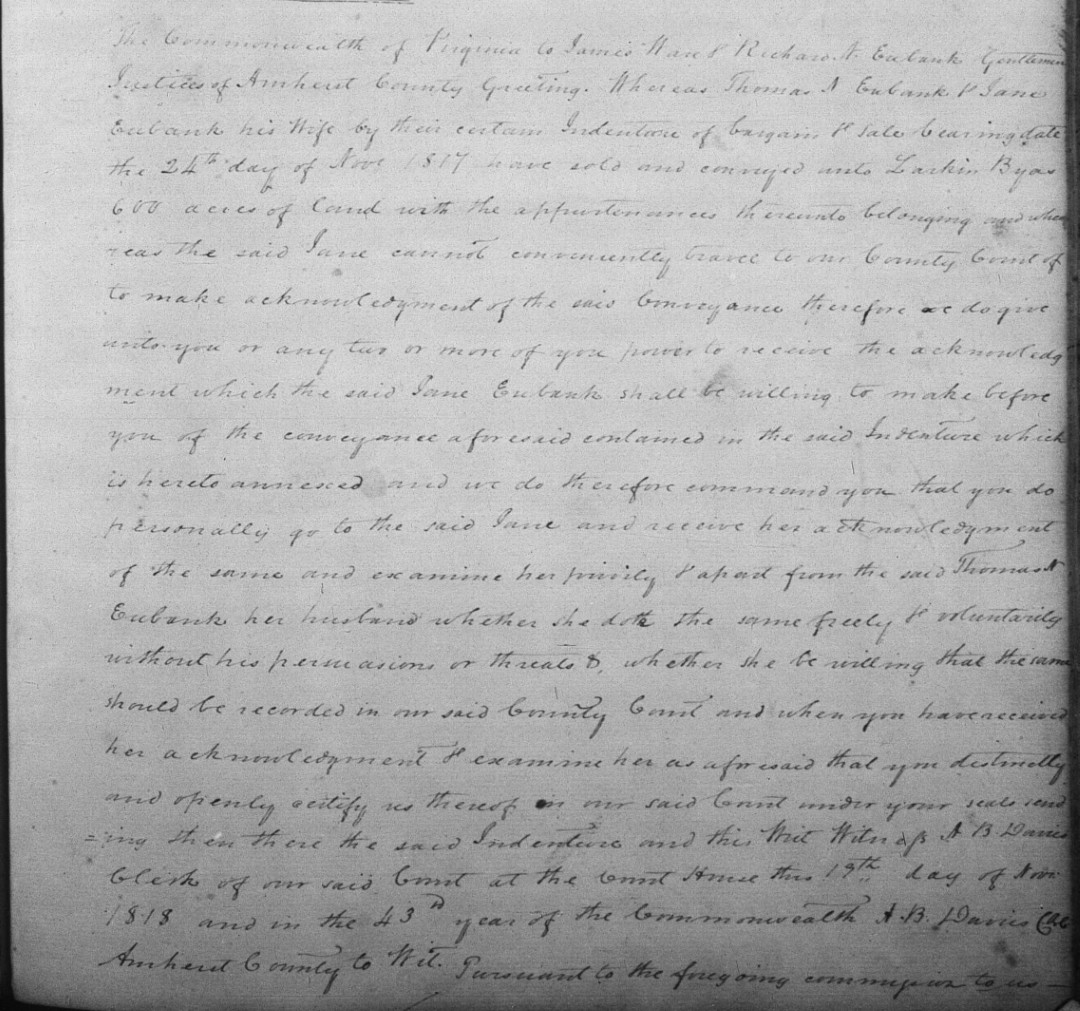 The Commonwealth of Virginia to James Ware & Richard N. Eubank Gentlemen
Justices of Amherst County Greeting. Whereas Thomas N Eubank & Jane
Eubank his Wife by their certain Indentoure of bargain & Sale bearing date
the 24th day of Novr 1817 have sold and conveyed unto Larkin Byas
600 acres of land with the appurtenances thereunto belonging and whe
reas the said Jane cannot conveniently travel to our County Court of
to make acknowledgment of the said Conveyance therefore we do give
unto you or any two or more of you power to receive the acknowledg
ment which the said Jane Eubank shall be willing to make before
you of the conveyance aforesaid contained in the said Indenture which
is hereto annexed and we do therefore command you that you do
personally go to the said Jane and receive her acknowledgment
of the same and examine her privily & apart from the said Thomas N
Eubank her husband whether she doth the same freely & voluntarily
without his persuasions or threats & whether she be willing that the same
should be recorded in our said County Court and when you have received
her acknowledgment & examine her as aforesaid that you distinctly
and openly certify us thereof in our said Court under your seals send
=ing then there the said Indenture and this Writ Witness A B. Davies
Clerk of our said Court at the Court House this 19th day of Novr
1818 and in the 43d year of the Commonwealth A. B. Davies
Amherst County to Wit. Pursuant to the foregoing commission to us —